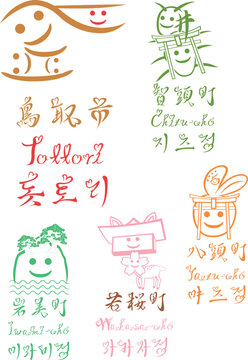 鳥取市
Tottori
돗토리
智頭町
Chizu-cho
지즈정
岩美町
Iwami-cho
이와미정
若桜町
Wakasa-cho
와카사정
八頭町
Yazu-cho
야즈정